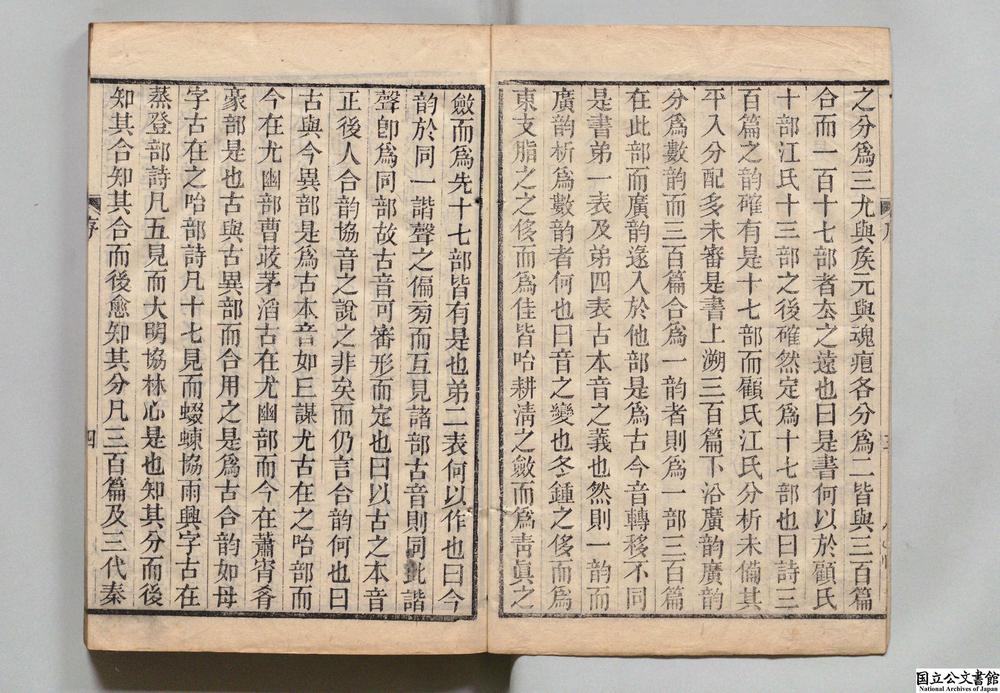 之分爲三尤與矦元與魂痕各分爲二皆與三百篇
合而一百十七部者夳之遠也曰是書何以於顧氏
十部江氏十三部之後確然定爲十七部也曰詩三
百篇之韵確有是十七部而顧氏江氏分析未備其
平入分配多未審是書上溯三百篇下沿廣韵廣韵
分爲數韵而三百篇合爲一韵者則爲一部三百篇
在此部而廣韵遂入於他部是爲古今音轉移不同
是書弟一表及弟四表古本音之義也然則一韵而
廣韵析爲數韵者何也曰音之變也冬鍾之侈而爲
東支脂之之侈而爲佳皆咍耕淸之斂而爲靑眞之
斂而爲先十七部皆有是也弟二表何以作也曰今
韵於同一諧聲之偏㫄而互見諸部古音則同此諧
聲卽爲同部故古音可審形而定也曰以古之本音
正後人合韵協音之說之非矣而仍言合韵何也曰
古與今異部是爲古本音如丘謀尤古在之咍部而
今在尤幽部曹茇茅滔古在尤幽部而今在蕭宵肴
豪部是也古與古異部而合用之是爲古合韵如母
字古在之咍部詩凡十七見而蝃蝀協雨興字古在
蒸登部詩凡五見而大明協林心是也知其分而後
知其合知其合而後愈知其分凡三百篇及三代秦
序
四
国立公文書館
National Archives of Japan